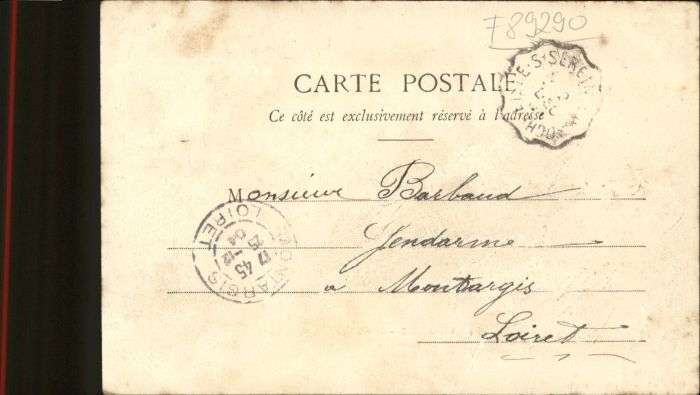 789290
CARTE POSTALE
Ce côté est exclusivement réservé à l'adresse
Monsieur Barbaud
Gendarme
à Montargis
Loiret
MONTARGIS
LOIRET
17 45
25-12
04